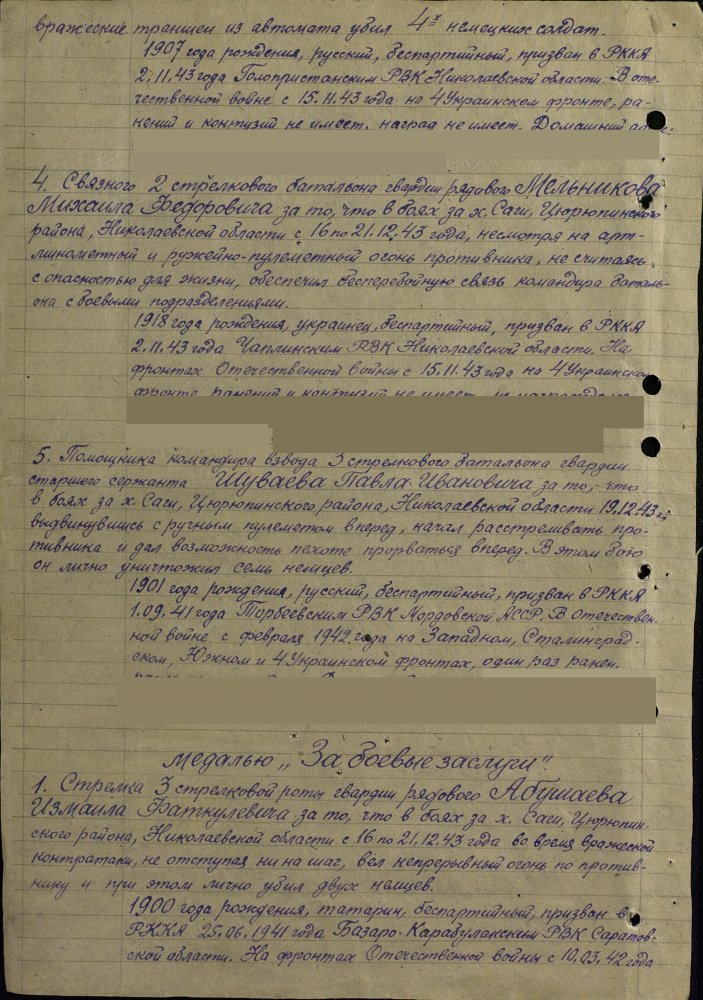 вражеские траншеи из автомата убил 4х немецких солдат.
1907 года рождения, русский, беспартийный, призван в РККА
2.11.43 года Голопристанским РВК Николаевской области. В оте-
чественной войне с 15.11.43 года на 4 Украинском фронте, ра-
нений и контузий не имеет, наград не имеет. Домашний
4. Связного 2 стрелкового батальона гвардии рядового Мельникова
Михаила Федоровича за то, что в боях за х. Саги, Цюрюпинского
района, Николаевской области с 16 по 21.12.43 года, несмотря на арт-
минометный и ружейно-пулеметный огонь противника, не считаясь
с опасностью для жизни, обеспечил бесперебойную связь командира баталь-
она с боевыми подразделениями.
1918 года рождения, украинец, беспартийный, призван в РККА
2.11.43 года Чаплинским РВК Николаевской области. На
фронтах Отечественной войны с 15.11.43 года на 4 Украинском
фронте, ранений и контузий не имеет,
5. Помощника командира взвода 3 стрелкового батальона гвардии
старшего сержанта Шуваева Павла Ивановича за то, что
в боях за х. Саги, Цюрюпинского района, Николаевской области 19.12.43
выдвинувшись с ручным пулеметом вперед, начал расстреливать про-
тивника и дал возможность пехоте прорваться вперед. В этом бою
он лично уничтожил семь немцев.
1901 года рождения, русский, беспартийный, призван в РККА
1.09.41 года Торбеевским РВК Мордовской АССР. В Отечествен-
ной войне с февраля 1942 года на Западном, Сталинград-
ском, Южном и 4 Украинском фронтах, один раз ранен.
медалью „За боевые заслуги"
1. Стрелка 3 стрелковой роты гвардии рядового Абушаева
Измаила Фаткулевича за то, что в боях за х. Саги, Цюрюпин-
ского района, Николаевской области с 16 по 21.12.43 года во время вражеской
контратаки, не отступая ни на шаг, вел непрерывный огонь по против-
нику и при этом лично убил двух немцев.
1900 года рождения, татарин, беспартийный, призван в
РККА 25.06.1941 года Базаро-Карабулакским РВК Саратов-
ской области. На фронтах Отечественной войны с 10.03.42 года